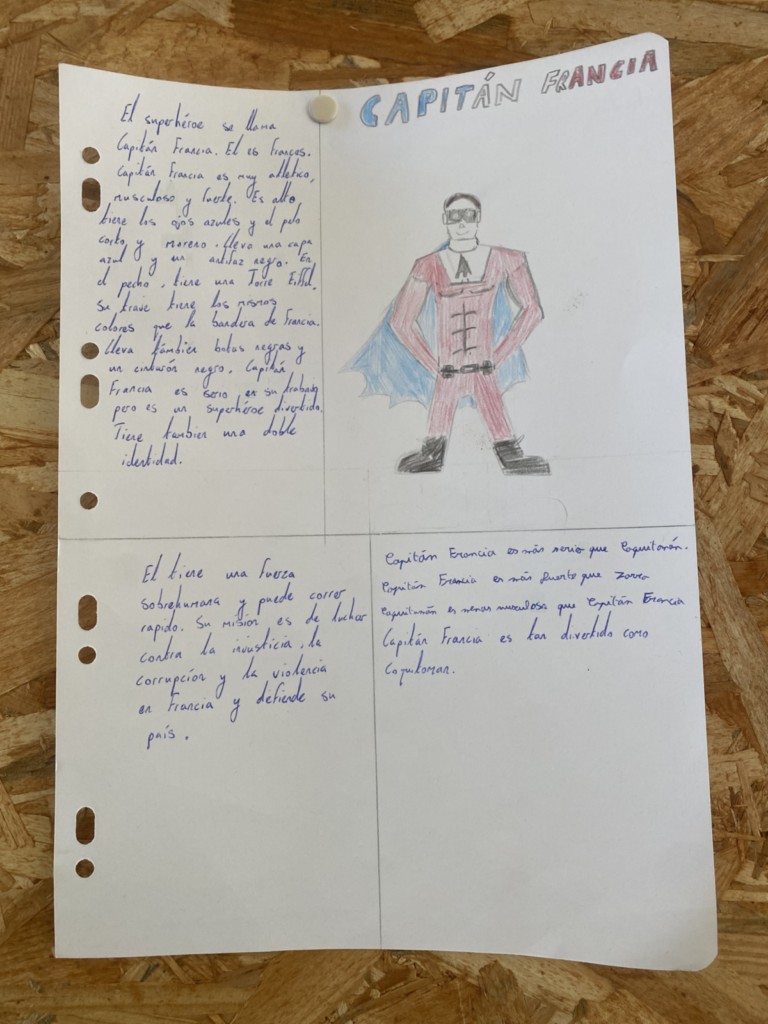 CAPITÁN FRANCIA
El superhéroe se llama
Capitán Francia. El es Frances.
Capitán Francia es muy atletico,
musculoso y fuerte. Es alto
tiene los ojos azules y el pelo
corto y moreno. lleva una capa
azul y un antifaz negro. En
el pecho, tiene una Torre Eiffel.
Su trave tiene los mismos
colores que la bandera de Francia.
lleva también botas negras y
un cinturón negro. Capitán
Francia es serio en su trabajo
pero es un superhéroe divertido.
Tiene tambien una doble
identidad.
El tiene una fuerza
sobrehumana y puede correr
rapido. Su misión es de luchar
contra la injusticia, la
corrupción y la violencia
en Francia y defiende su
país.
Capitán Francia es más serio que Coquitomán.
Capitán Francia es más fuerte que Zorro
Coquitomán es menos musculoso que Capitán Francia
Capitán Francia es tan divertido como
Coquitoman.